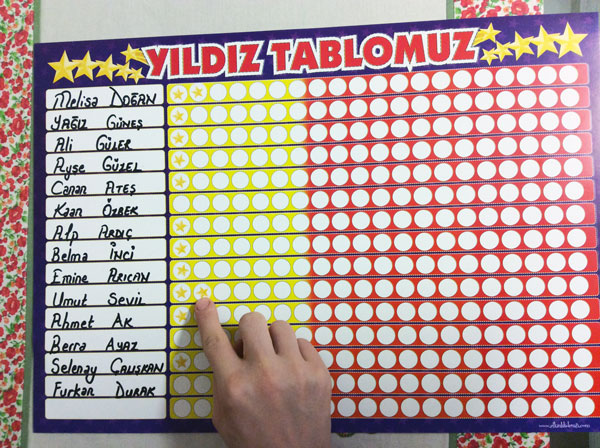 YILDIZ TABLOMUZ
Melisa DOĞAN
YAĞIZ GÜNEŞ
Ali GÜLER
Ayşe GÜZEL
Canan ATEŞ
Kaan ÖZBEK
Alp ARDIÇ
Belma İNCİ
Emine ARICAN
Umut SEVİL
Ahmet AK
Berra AYAZ
Selenay ÇALIŞKAN
Furkan DURAK